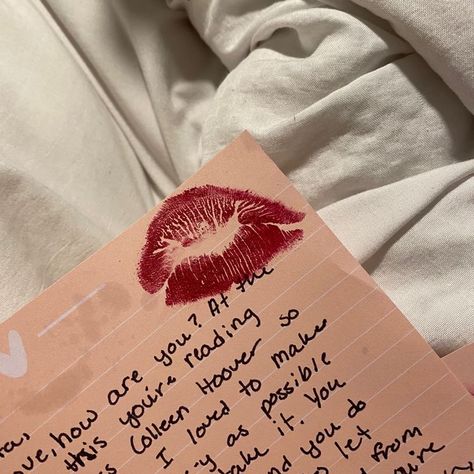 how are you? At the
this you're reading
Colleen Hoover so
I loved to make
as possible
it. You
you do
let
from